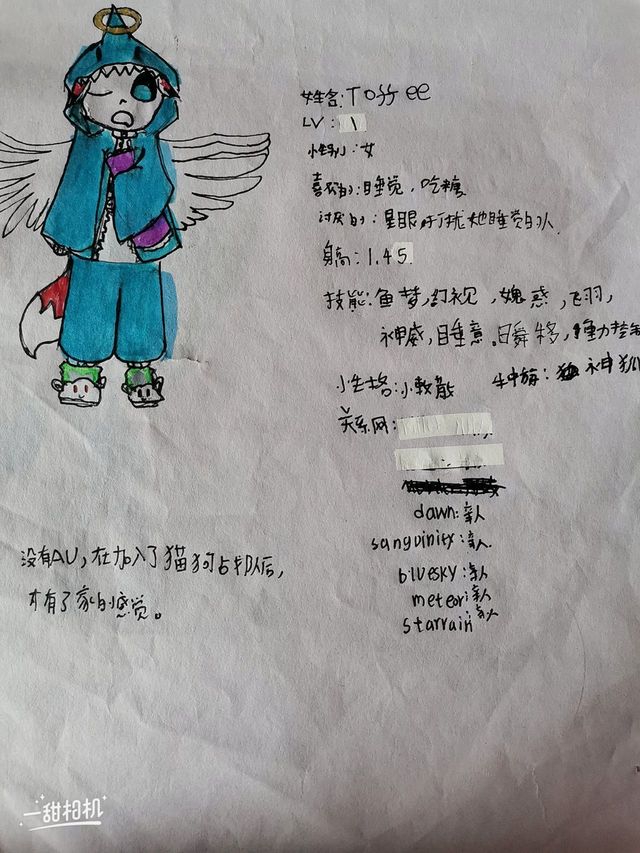 姓名:Toffee
LV: 1
性别:女
喜欢的:睡觉,吃糖
讨厌的:星眼 打扰她睡觉的人.
身高:1.45.
技能:鱼梦,幻视,魂惑,飞羽,
神威,睡意.瞬移,重力控制
性格:小散 种族:神狐
关系网:
dawn:亲人
sanguinity:亲人.
bluesky:亲人
meteor:亲人
starrain:亲人
没有AU,在加入了猫狗占戈队后,
才有了家的感觉。
一甜相机